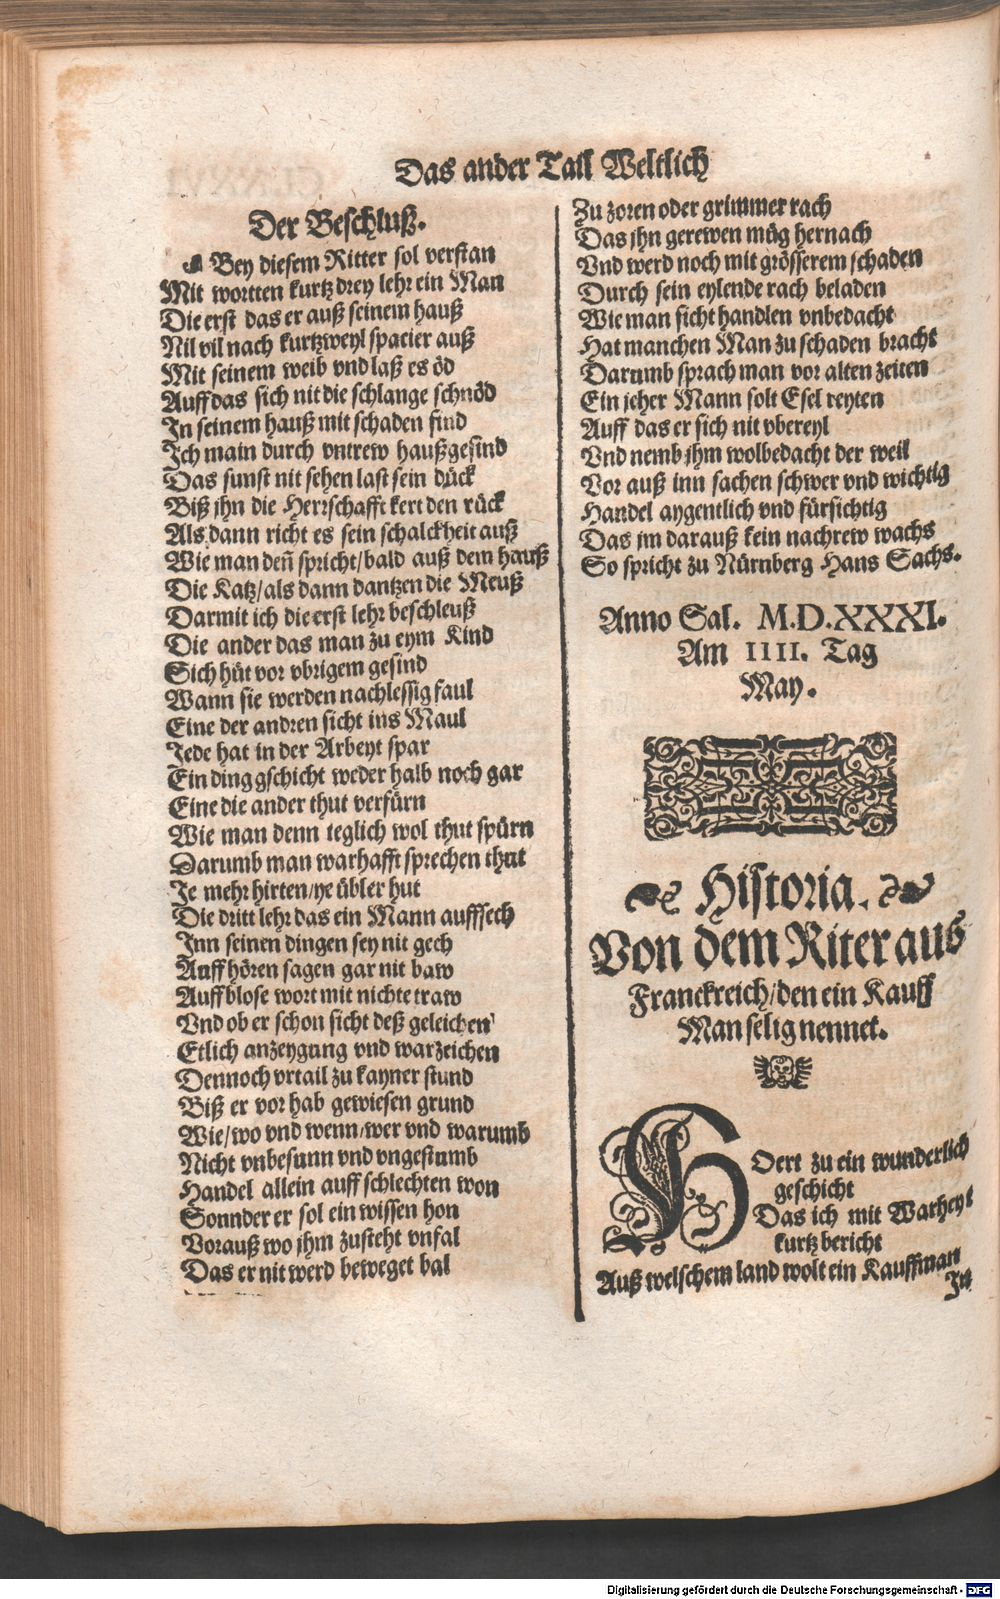 Das ander Tail Weltlich
Der Beschluß.
Bey diesem Ritter sol verstan
Mit wortten kurtz drey lehr ein Man
Die erst das er auß seinem hauß
Nil vil nach kurtzweyl spacier auß
Mit seinem weib vnd laß es öd
Auff das sich nit die schlange schnöd
In seinem hauß mit schaden find
Ich main durch vntrew haußgesind
Das sunst nit sehen last sein dück
Biß jhn die Herrschafft kert den rück
Als dann richt es sein schalckheit auß
Wie man deñ spricht/bald auß dem hauß
Die Katz/als dann dantzen die Meuß
Darmit ich die erst lehr beschleuß
Die ander das man zu eym Kind
Sich hüt vor vbrigem gesind
Wann sie werden nachlessig faul
Eine der andren sicht ins Maul
Jede hat in der Arbeyt spar
Ein ding gschicht weder halb noch gar
Eine die ander thut verfürn
Wie man denn teglich wol thut spürn
Darumb man warhafft sprechen thut
Je mehr hirten/ye übler hut
Die dritt lehr das ein Mann auffsech
Inn seinen dingen sey nit gech
Auff hören sagen gar nit baw
Auff blose wort mit nichte traw
Vnd ob er schon sicht deß geleichen
Etlich anzeygung vnd warzeichen
Dennoch vrtail zu kayner stund
Biß er vor hab gewiesen grund
Wie/wo vnd wenn/wer vnd warumb
Nicht vnbesunn vnd vngestumb
Handel allein auff schlechten won
Sonnder er sol ein wissen hon
Vorauß wo jhm zusteht vnfal
Das er nit werd beweget bal
Zu zoren oder grimmer rach
Das jhn gerewen müg hernach
Vnd werd noch mit grösserem schaden
Durch sein eylende rach beladen
Wie man sicht handlen vnbedacht
Hat manchen Man zu schaden bracht
Darumb sprach man vor alten zeiten
Ein jeher Mann solt Esel reyten
Auff das er sich nit vbereyl
Vnd nemb jhm wolbedacht der weil
Vor auß inn sachen schwer vnd wichtig
Handel aygentlich vnd fürsichtig
Das jm darauß kein nachrew wachs
So spricht zu Nürnberg Hans Sachs.
Anno Sal. M.D.XXXI.
Am IIII. Tag
May.
Historia.
Von dem Riter aus
Franckreich/den ein Kauff
Man selig nennet.
HOert zu ein wunderlich
geschicht
Das ich mit Warheyt
kurtz bericht
Auß welschem land wolt ein Kauffman
In
Digitalisierung gefördert durch die Deutsche Forschungsgemeinschaft - DFG